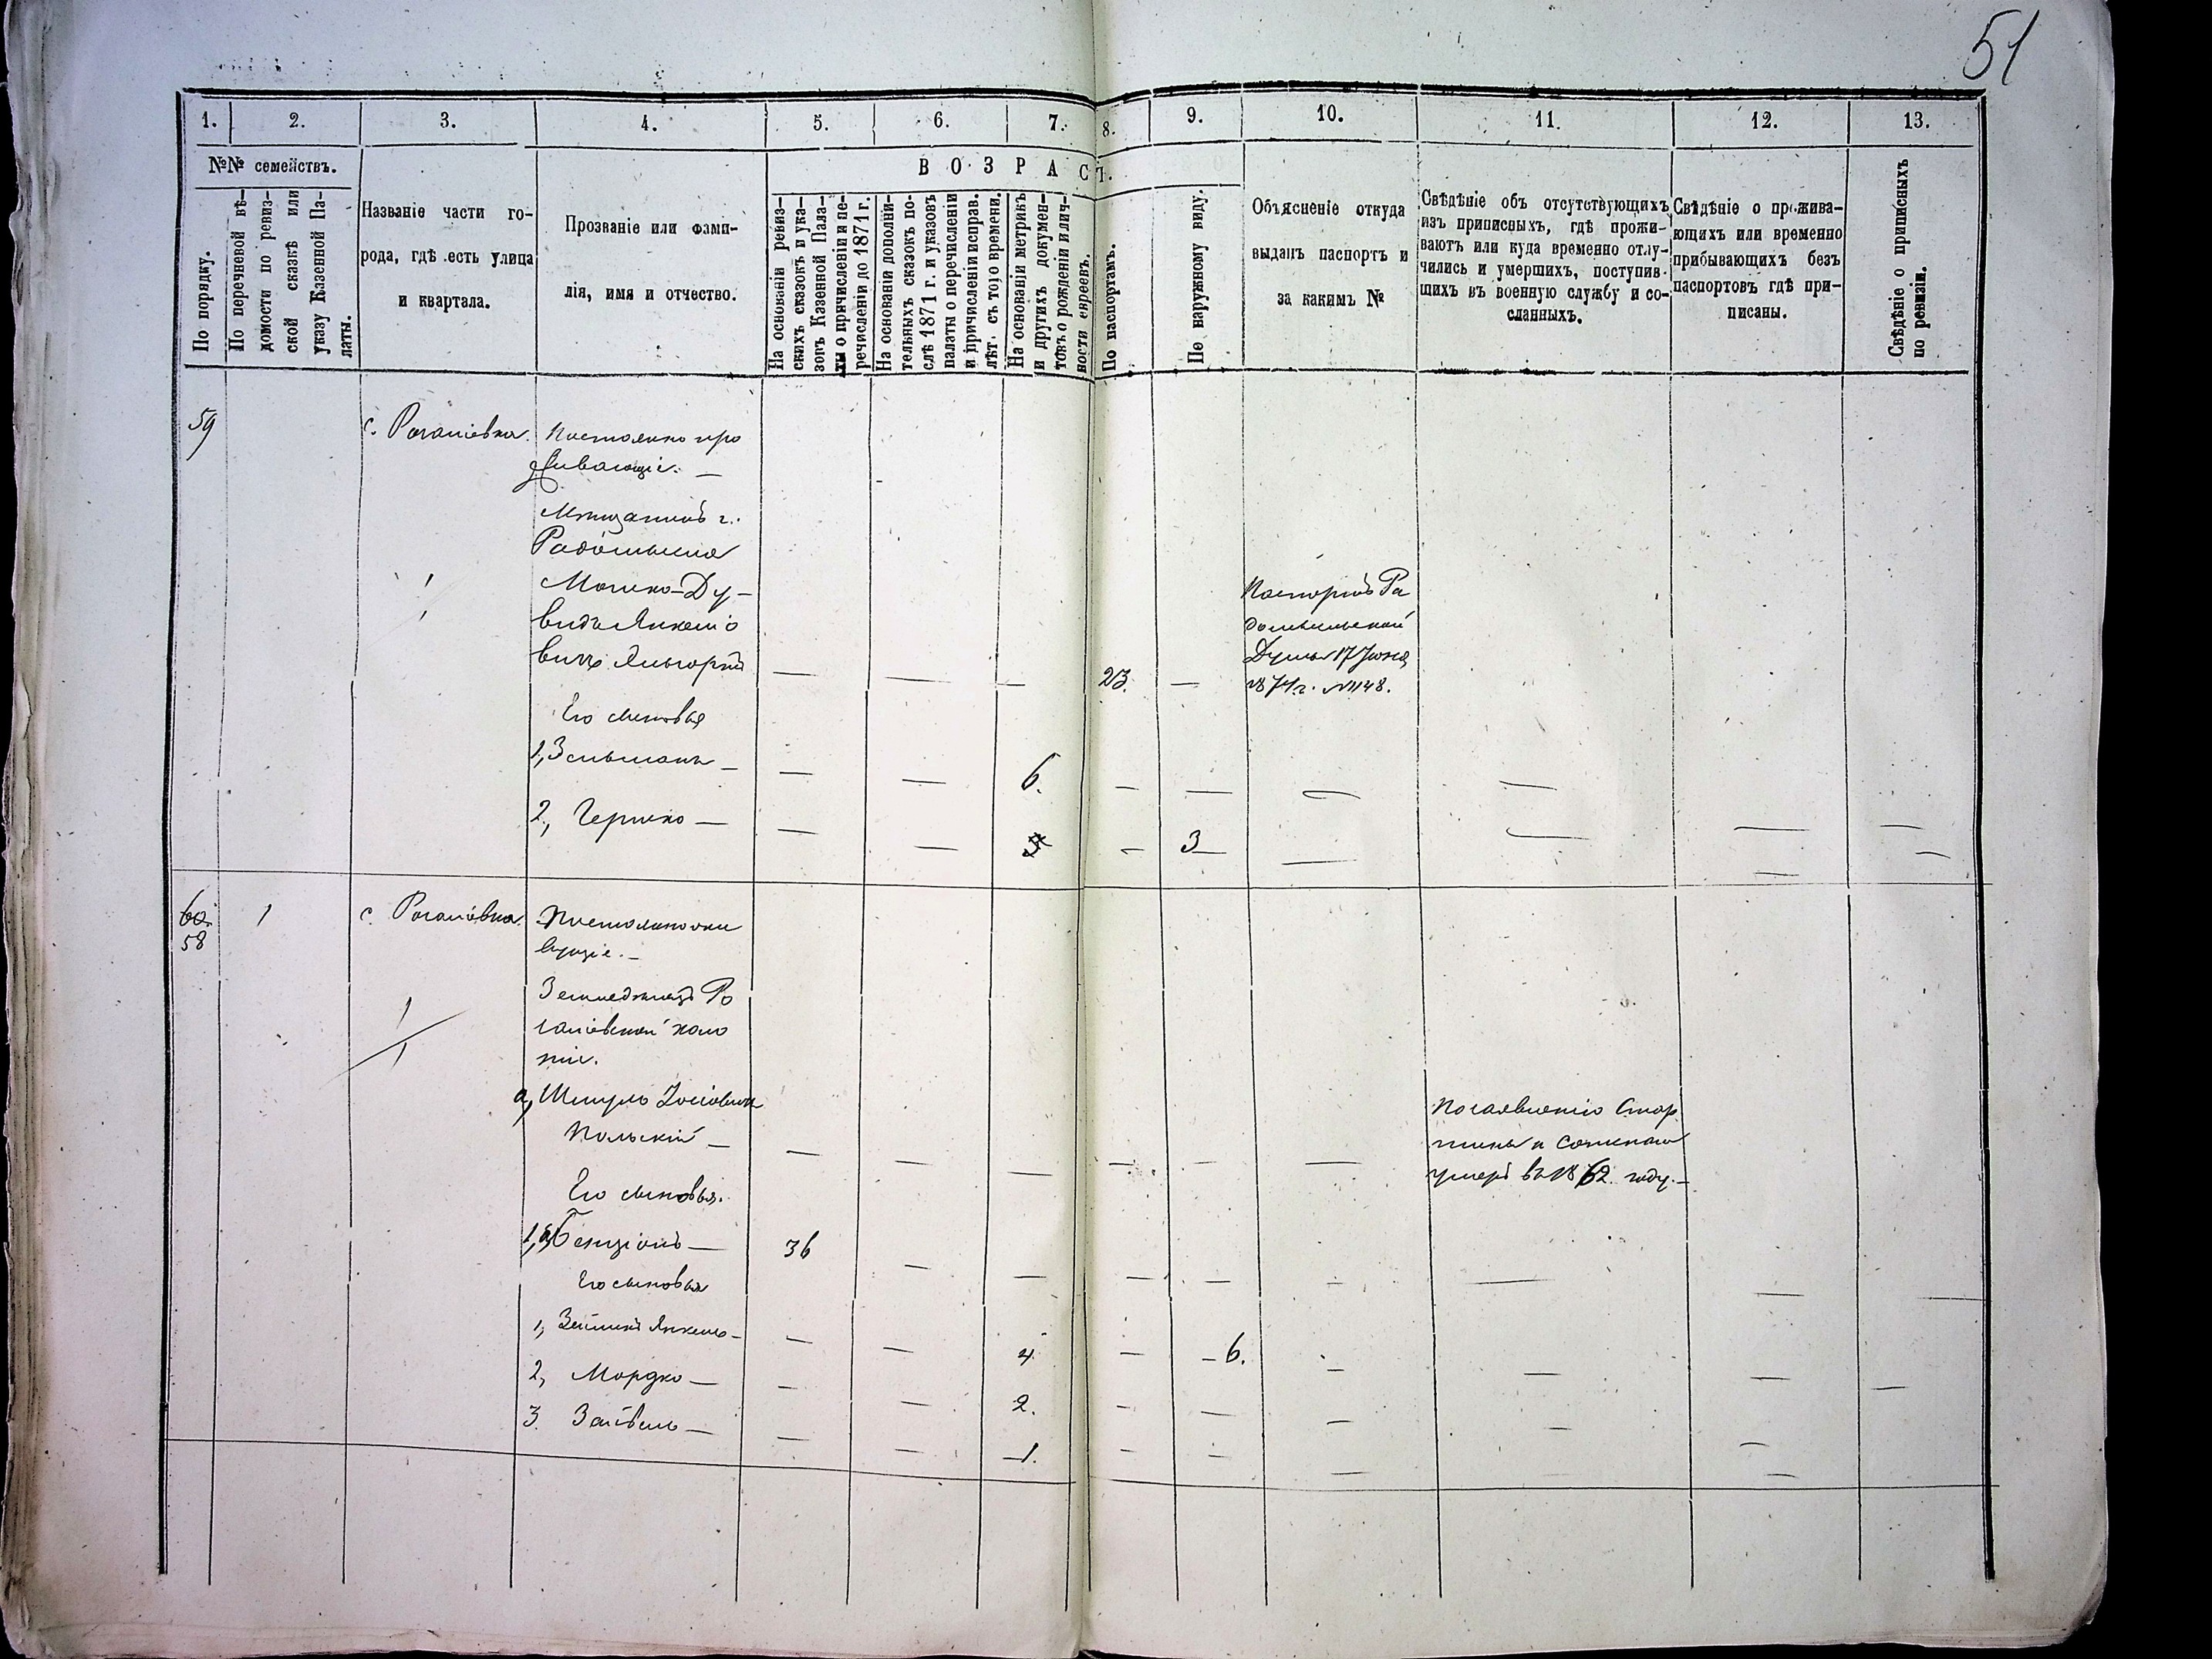 51
1. 2. 3. 4. 5. 6. 7. 8. 9. 10. 11. 12. 13.
№№ семействъ.
По порядку.
По перечневой вѣ-
домости по ревиз-
ской сказкѣ или
указу Казенной Па-
латы.
Названіе части го-
рода, гдѣ есть улица
и квартала.
Прозваніе или фами-
лія, имя и отчество.
ВОЗРАСТ.
На основаніи ревиз-
скихъ сказокъ и ука-
зовъ Казенной Пала-
ты о причисленіи и пе-
речисленіи до 1871 г.
На основаніи дополни-
тельныхъ сказокъ по-
слѣ 1871 г. и указовъ
палаты о перечисленіи
и причисленіи исправ.
лѣт. съ того времени.
На основаніи метрикъ
и другихъ докумен-
товъ о рожденіи и лич-
ности евреевъ.
По паспортамъ.
По наружному виду.
Объясненіе откуда
выданъ паспортъ и
за какимъ №
Свѣдѣніе объ отсутствующихъ
изъ приписныхъ, гдѣ прожи-
ваютъ или куда временно отлу-
чились и умершихъ, поступив-
шихъ въ военную службу и со-
сланныхъ.
Свѣдѣніе о прожива-
ющихъ или временно
прибывающихъ безъ
паспортовъ гдѣ при-
писаны.
Свѣдѣніе о приписныхъ
по ревизіи.
59 с. Рогачіевка. Постоянно про
живающіе. —
Мѣщанинъ г.
Радомысля
Мошко-Ду-
видъ Янкеліо
вичъ
— — — 23. —
Паспортъ Ра
домысльской
Думы 17 Іюня
1874 г. №1148.
Его сыновья
1, Зельманъ — — — 6. — — — —
2, Гершко — — — 3 — 3 — — — —
60.
58 1 с. Рогачіевка. Постоянно жи
вущіе. —
Земледѣлецъ Ро
гачіевской коло
ніи.
а, Шмуль Іосіовичъ
Польскій — — — — — —
По заявленію Стар
шины
умеръ въ 1862 году. —
Его сыновья.
1, а, Бенціонъ — 36 — — — — — — — —
Его сыновья
1, Зейликъ Янкель — — — 4 — — 6. — — — —
2, Мордко — — — 2. — — — — —
3. Зайвель — — — 1. — — — —